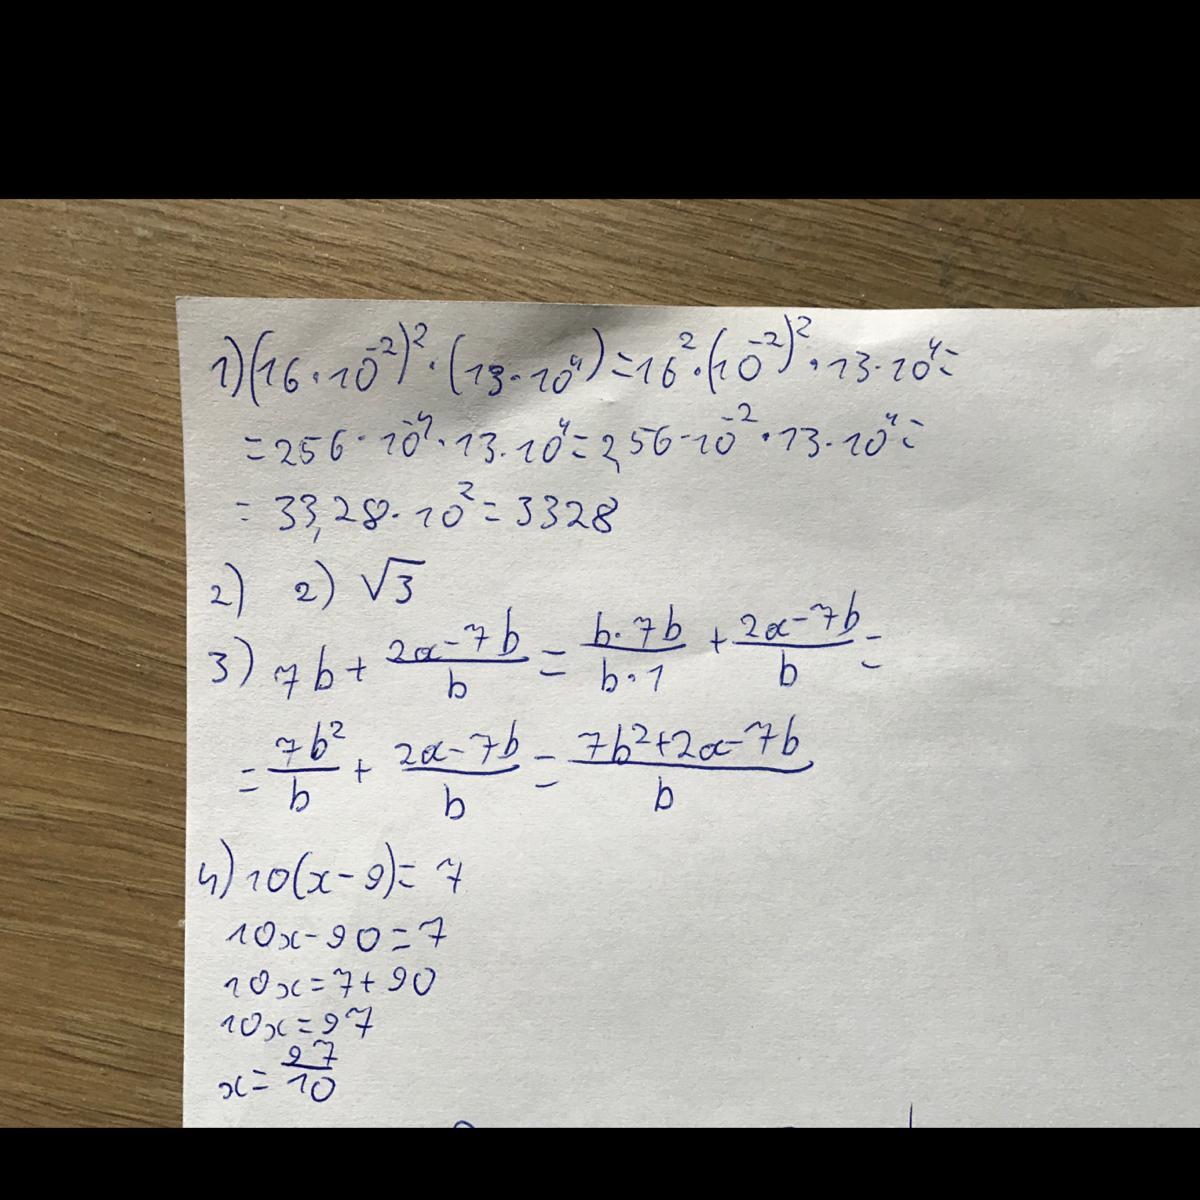 1) (16·10⁻²)²·(13·10⁴)=16²·(10⁻²)²·13·10⁴=
=256·10⁻⁴·13·10⁴=2,56·10⁻²·13·10⁴=
=33,28·10²=3328
2) 2) √3
3) 7b+(2a-7b)/b=(b·7b)/(b·1)+(2a-7b)/b=
=7b²/b+(2a-7b)/b=(7b²+2a-7b)/b
4) 10(x-9)=7
10x-90=7
10x=7+90
10x=97
x=97/10